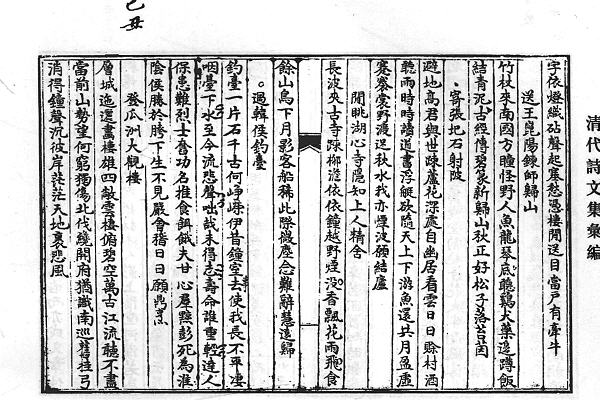 清代詩文集彙編
宇依燈織砧聲起羈愁憑樓閒送目當戶有牽牛
送王崑陽鍊師歸山
竹杖來南國方瞳怪野人魚龍琴底聽鷄犬藥邊蹲飯
結青泥古經傳碧篆新歸山秋正好松子落苔茵
寄張圯石射陂
避地高君與世疎蘆花深處自幽居看雲日日賒村酒
聽雨時時讀道書浮艇欲隨天上下游魚還共月盈虛
裳野渡迨秋水我亦煙波願結廬
閒眺湖心寺隱知上人精舍
長波夾古寺踈柳澹依依鐘越野煙沒香飄花雨飛食
餘山鳥下月影客船稀此際微塵念難辭慧遠歸
過韓侯釣臺
釣臺一片石千古何崢嶸伊昔鐘室去使我長不平淒
咽臺下水至今流悲聲咄哉未得志壽命誰重輕達人
保患難烈士奮功名推食餌餓夫甘心羣黥彭死為淮
陰侯勝於胯下生不見嚴會稽日日願鼎烹
登瓜洲大觀樓
層城迤邐畫樓雄四敞雲棲俯碧空萬古江流聽不盡
當前山勢望何窮獨傷北伐繞開府猶識南巡舊桂弓
消得鐘聲沉彼岸茫茫天地裏悲風
己丑